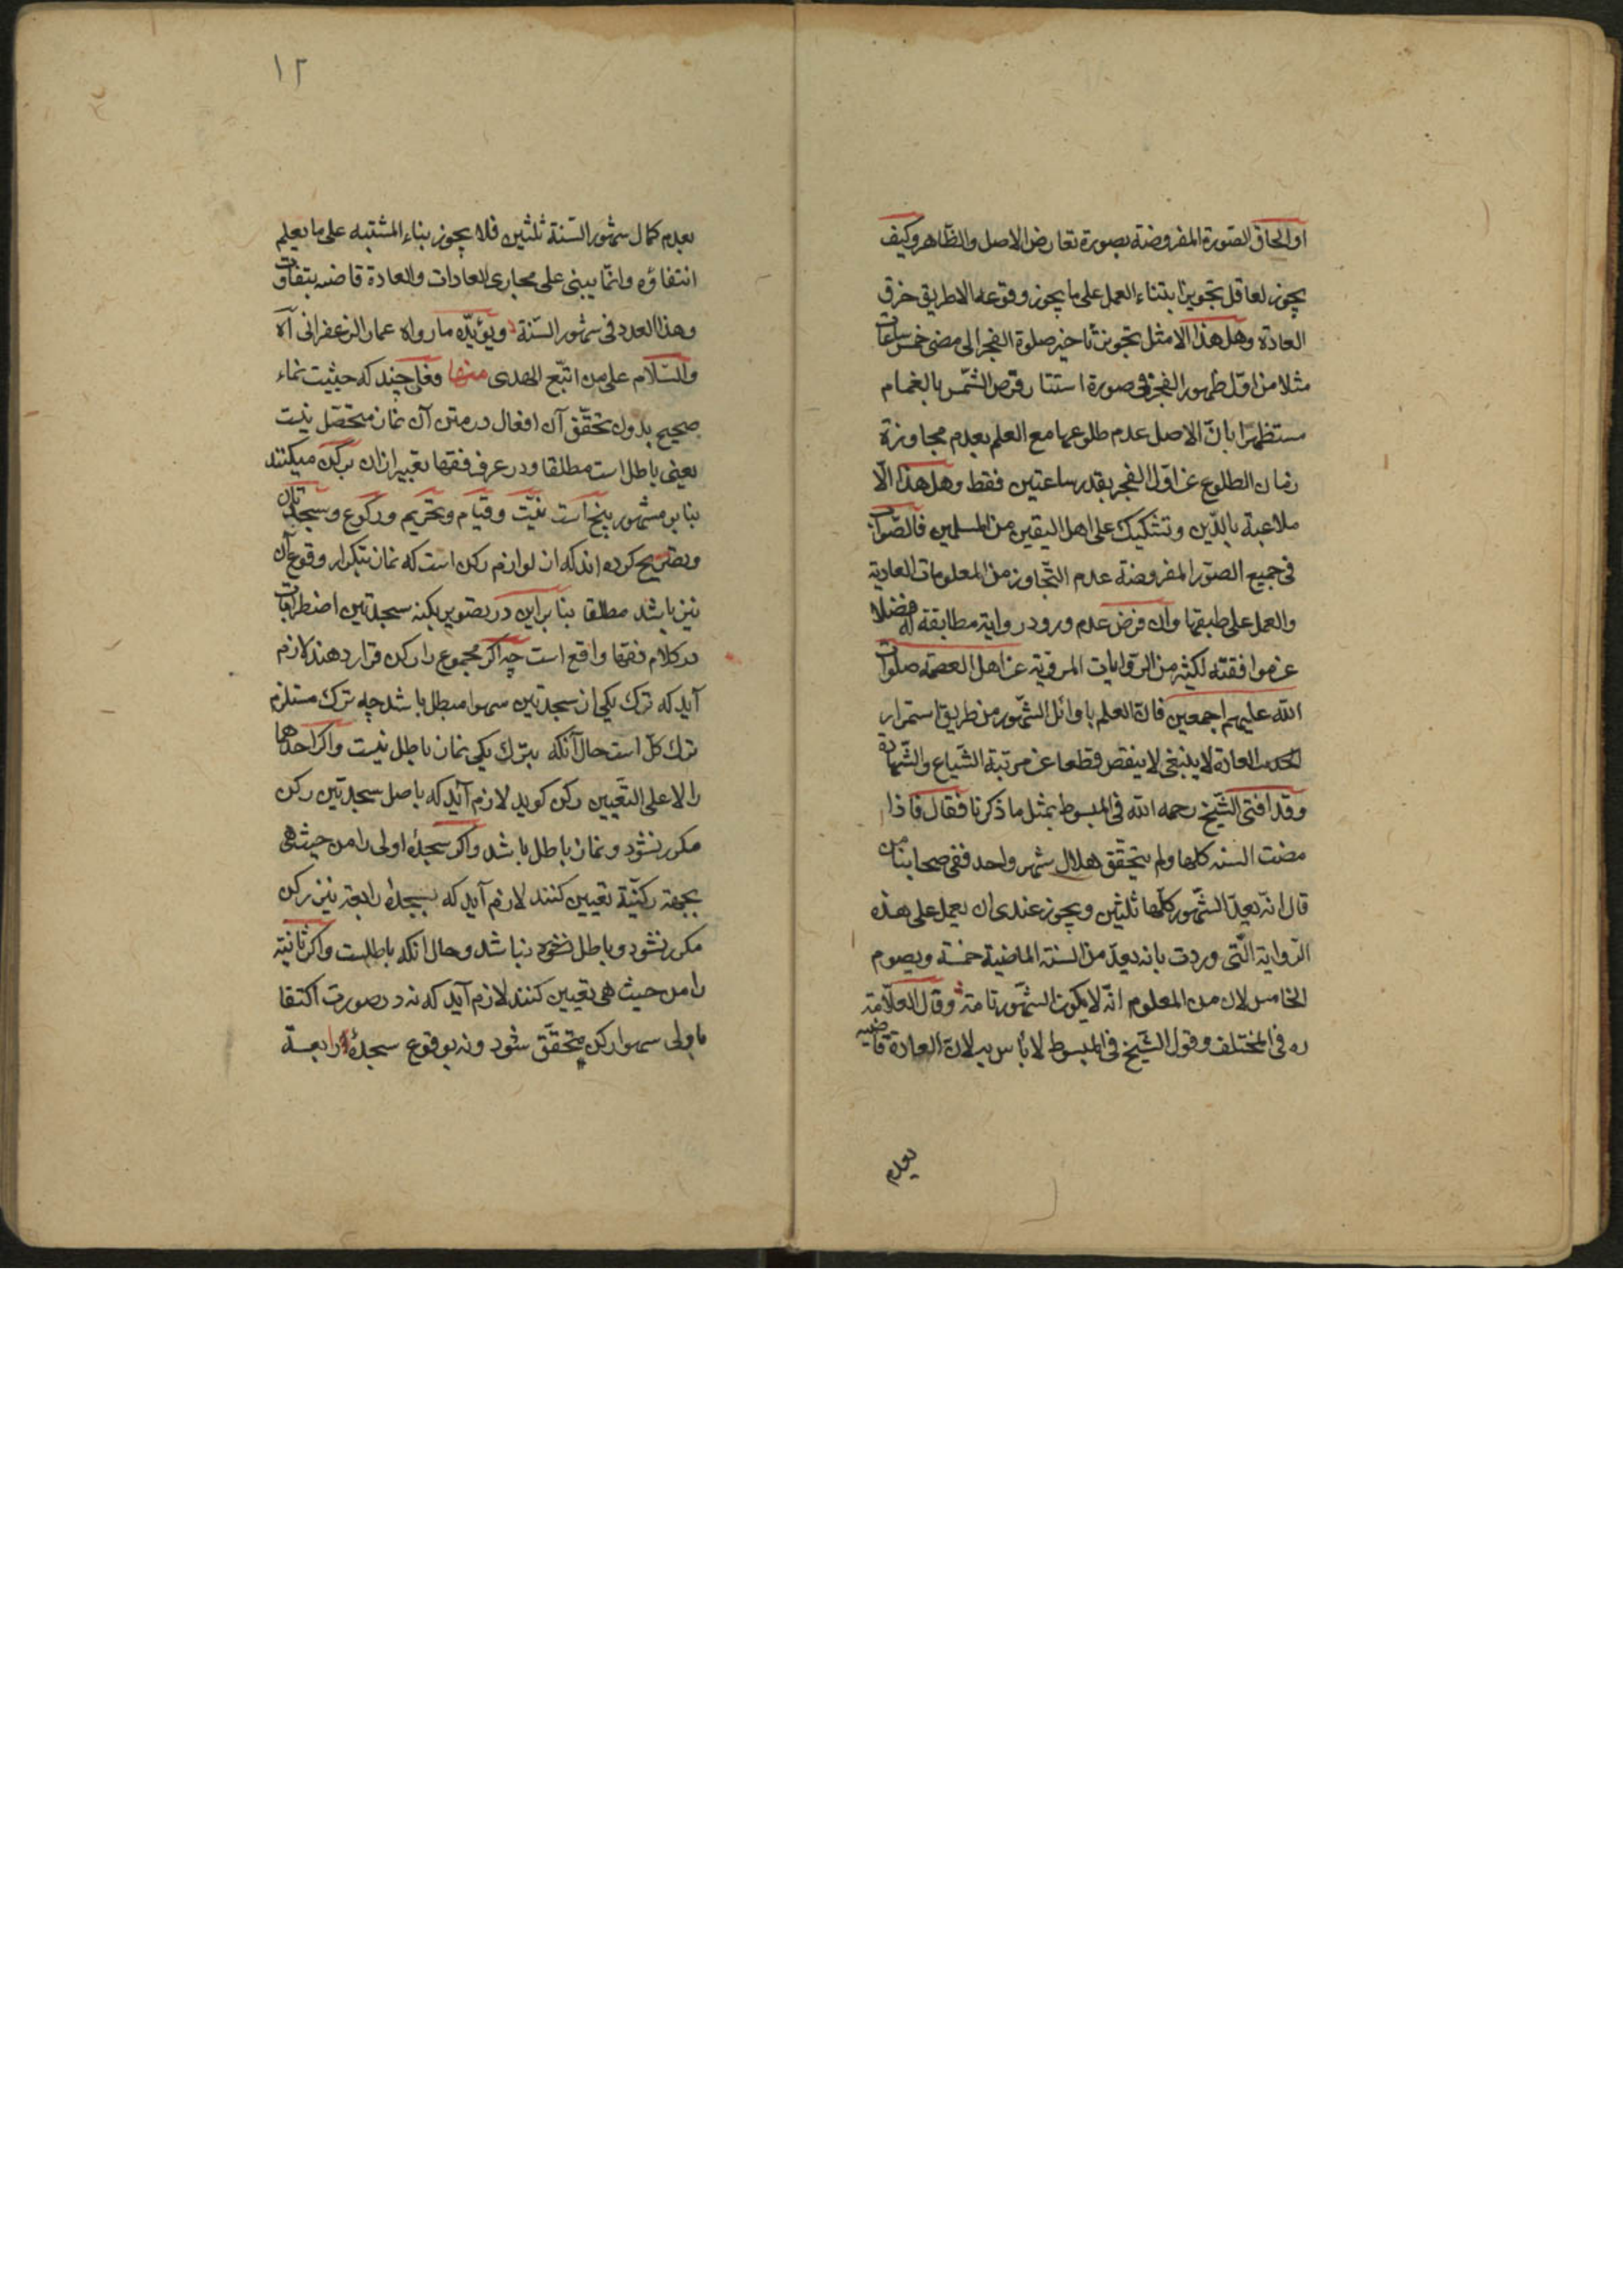 او الحاق الصورة المفروضة بصورة تعارض الاصل والظاهر وكيف
يجوز لعاقل تجويز ابتناء العمل على ما يجوز وقوعه الا بطريق خرق
العادة وهل هذا الا مثل تجويز تأخير صلوة الفجر الى مضى خمس ساعات
مثلا من اوّل ظهور الفجر فى صورة استتار قرص الشمس بالغمام
مستظهرا بانّ الاصل عدم طلوعها مع العلم بعدم مجاوزة
زمان الطلوع عن اوّل الفجر بقدر ساعتين فقط وهل هذا الّا
ملاعبة بالدّين وتشكيك على اهل اليقين من المسلمين فالصّواب
فى جميع الصور المفروضة عدم التجاوز من المعلومات العادية
والعمل على طبقها وان فرض عدم ورود رواية مطابقة له فضلا
عن موافقته لكثير من الرّوايات المروية عن اهل العصمة صلوات
الله عليهم اجمعين فانّ العلم باوائل الشّهور من طريق استمرار
العادة لا ينبغى لا ينقص قطعا عن مرتبة الشّياع والشّهادة
وقد افتى الشّيخ رحمه الله فى المبسوط بمثل ما ذكرنا فقال فاذا
مضت السنه كلها ولم يتحقق هلال شهر واحد ففى اصحابنا من
قال انّه يعدّ الشّهور كلّها ثلثين ويجوز عندى ان يعمل على هذه
الرّواية الّتى وردت بانه يعدّ من السنة الماضية خمسة ويصوم
الخامس لان من المعلوم انّه لا يكون الشّهور تامة وقال العلّامة
ره فى المختلف وقول الشّيخ فى المبسوط لا بأس به لانّ العادة قاضية
بعدم
١٢
بعدم كمال شهور السّنة ثلثين فلا يجوز بناء المشتبه على ما يعلم
انتفاؤه وانّما يبنى على مجارى العادات والعادة قاضية بتفاوت
وهذا العدد فى شهور السّنة ويؤيّده ما رواه عمار الزعفرانى آه
والسّلام على من اتبع الهدى منها فعلى چند كه حيثيت نماء
صحيح بدون تحقّق آن افعال در متن آن نماز متحصّل نيست
يعنى باطل است مطلقا ودر عرف فقها تعبير از ان بركن ميكنند
بنا بر مشهور پنج است نيّت وقيام وتحريم وركوع وسجدتان
وتصريح كرده اند كه از لوازم ركن است كه نماز بتكرار وقوع آن
نيز باشد مطلقا بنا براين در تصوير ركنيه سجدتين اضطرابات
در كلام فقها واقع است چه اكر مجموع را ركن قرار دهند لازم
آيد كه ترك يكى از سجدتين سهوا مبطل باشد چه ترك مستلزم
ترك كلّ است حال آنكه بترك يكى نماز باطل نيست واكر احدهما
را لا على التعيين ركن كويد لازم آيد كه باصل سجدتين ركن
مكرر نشود ونماز باطل باشد واكر سجدۀ اولى را من حيث هى
بجهة ركنيّة تعيين كنند لازم آيد كه بسجدۀ رابعة نيز ركن
مكرر نشود وباطل نباشد وحال انكه باطلست واكر ثانية
را من حيث هى تعيين كنند لازم آيد كه نه در صورت اكتفا
باولى سهوا ركن متحقّق شود ونه بوقوع سجدۀ رابعة